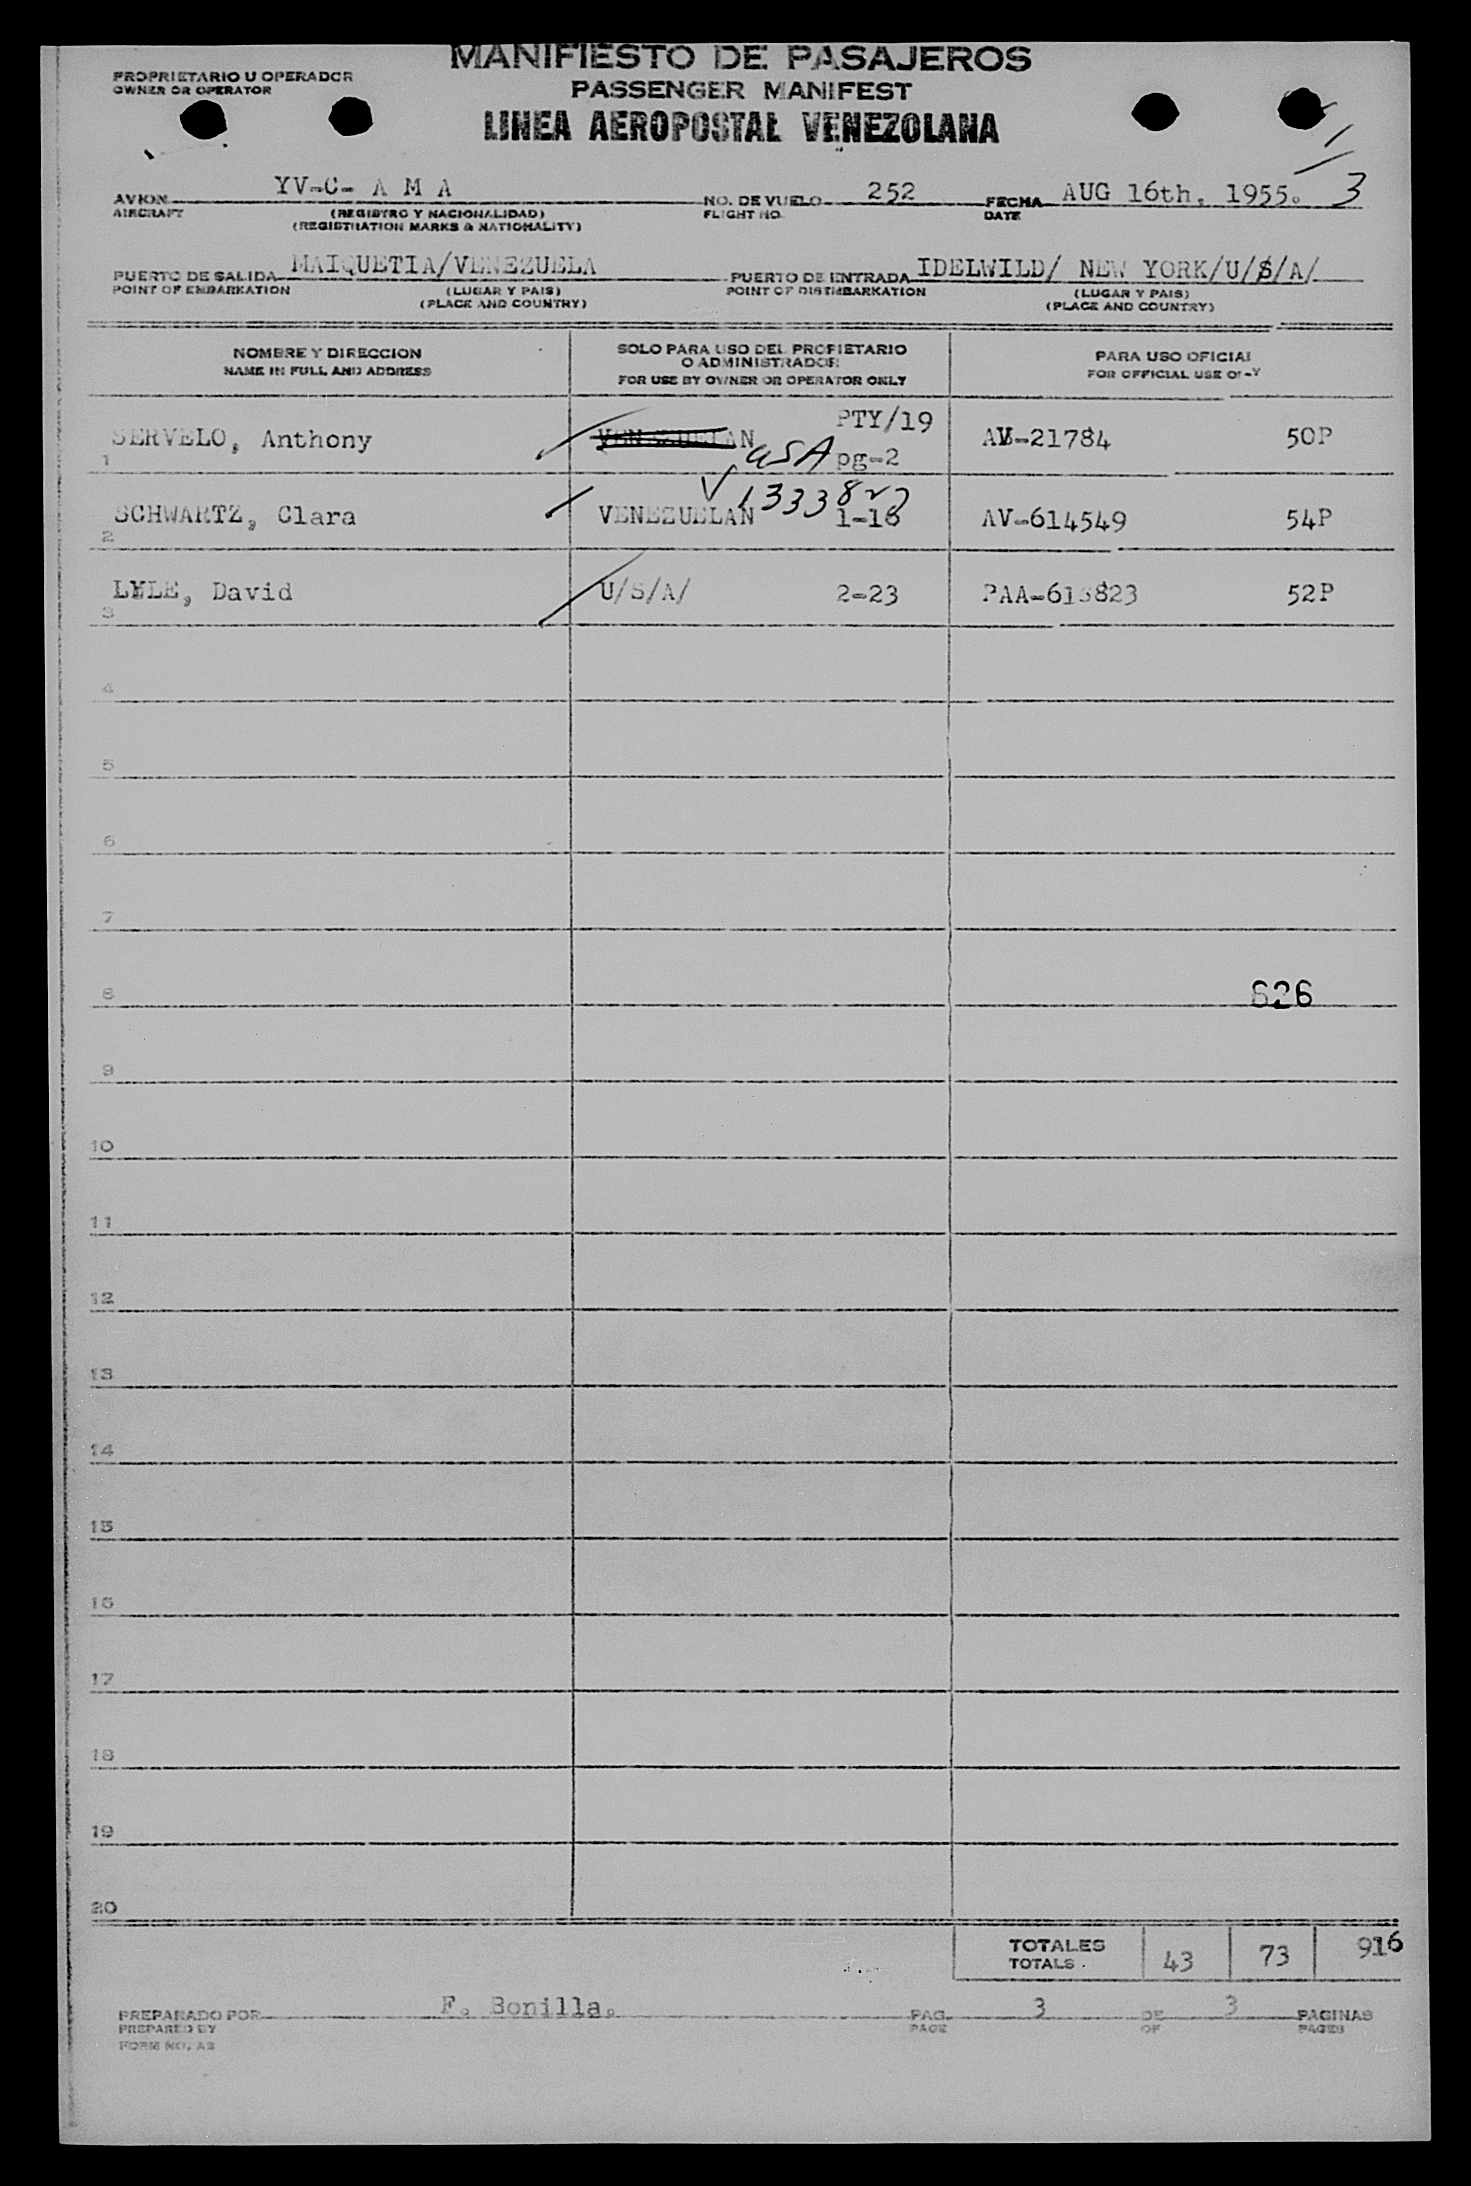 MANIFIESTO DE PASAJEROS
PROPRIETARIO U OPERADOR
OWNER OR OPERATOR
PASSENGER MANIFEST
LINEA AEROPOSTAL VENEZOLANA
AVION YV-C- A M A NO. DE VUELO 252 FECHA AUG 16th, 1955. 3
AIRCRAFT (REGISTRO Y NACIONALIDAD) FLIGHT NO. DATE
(REGISTRATION MARKS & NATIONALITY)
PUERTO DE SALIDA MAIQUETIA/VENEZUELA PUERTO DE ENTRADA IDELWILD/ NEW YORK/U/S/A/
POINT OF EMBARKATION (LUGAR Y PAIS) POINT OF DISEMBARKATION (LUGAR Y PAIS)
(PLACE AND COUNTRY) (PLACE AND COUNTRY)
NOMBRE Y DIRECCION SOLO PARA USO DEL PROPIETARIO PARA USO OFICIAL
O ADMINISTRADOR
NAME IN FULL AND ADDRESS FOR USE BY OWNER OR OPERATOR ONLY FOR OFFICIAL USE ONLY
PTY/19
SERVELO, Anthony VENEZUELAN AV-21784 50P
1 USA pg-2
13338
SCHWARTZ, Clara VENEZUELAN 1-18 AV-614549 54P
2
LYLE, David U/S/A/ 2-23 PAA-613823 52P
3
4
5
6
7
8 626
9
10
11
12
13
14
15
16
17
18
19
20
TOTALES 43 73 916
TOTALS
PREPARADO POR F. Bonilla. PAG. 3 DE 3 PAGINAS
PREPARED BY PAGE OF PAGES
FORM NO. A3